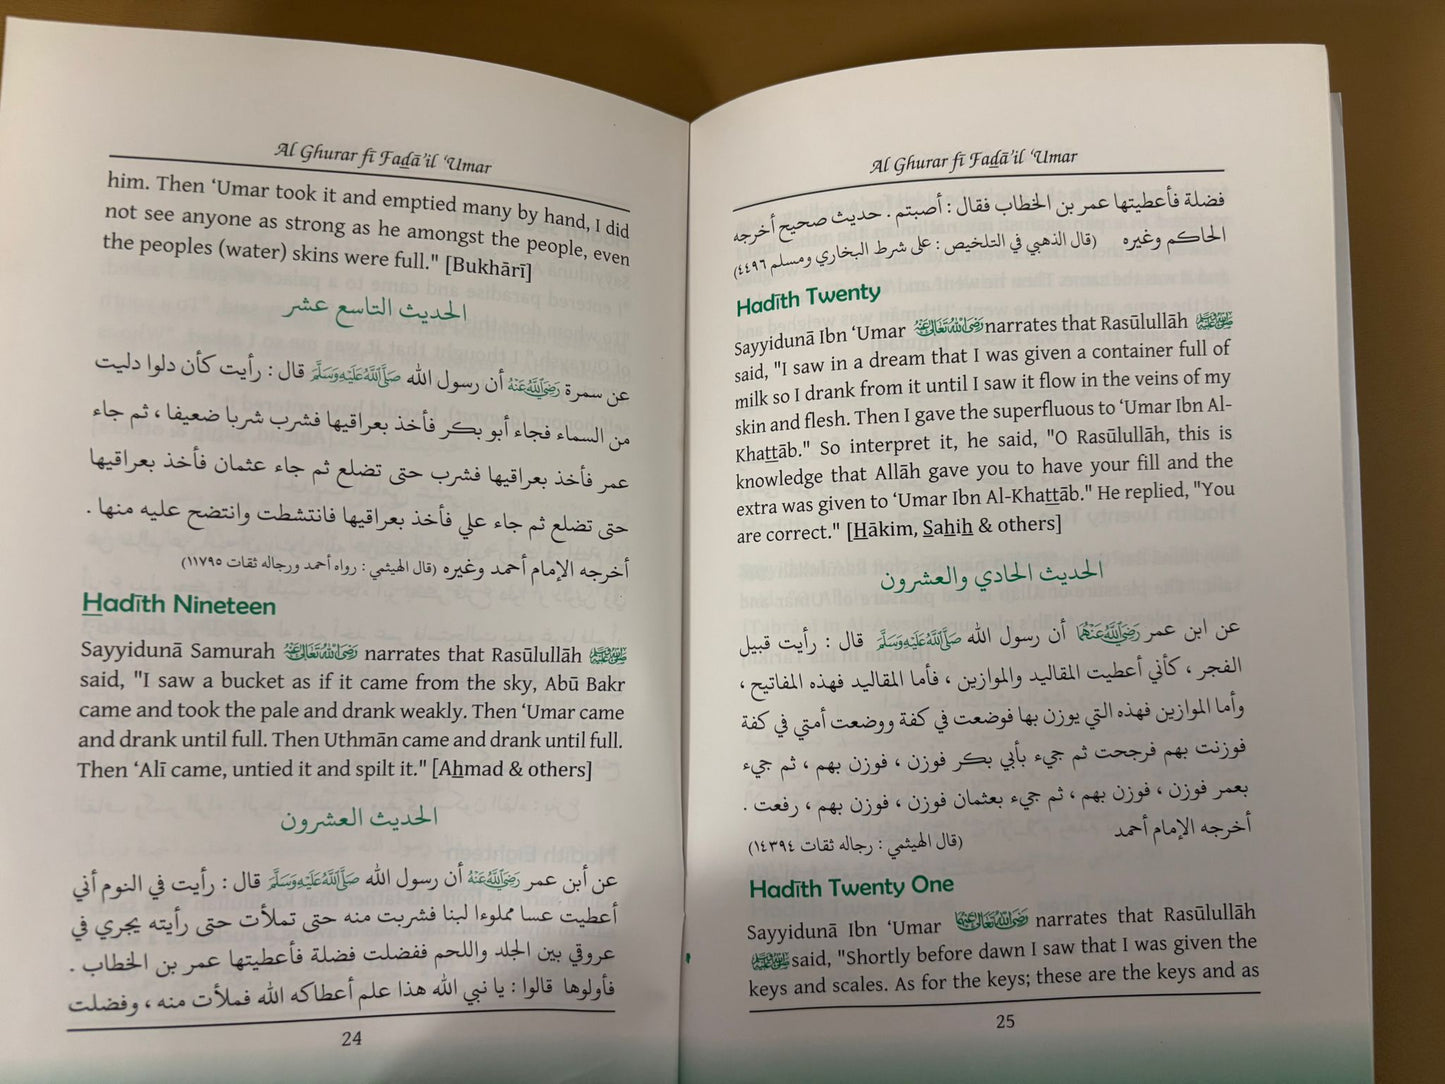 Al Ghurar fī Faḍā’il ‘Umar
him. Then ‘Umar took it and emptied many by hand, I did
not see anyone as strong as he amongst the people, even
the peoples (water) skins were full." [Bukhārī]
الحديث التاسع عشر
عن سمرة رَضِيَ اللهُ عَنْهُ أن رسول الله صَلَّى اللهُ عَلَيْهِ وَسَلَّمَ قال : رأيت كأن دلوا دليت
من السماء فجاء أبو بكر فأخذ بعراقيها فشرب شربا ضعيفا ، ثم جاء
عمر فأخذ بعراقيها فشرب حتى تضلع ثم جاء عثمان فأخذ بعراقيها
حتى تضلع ثم جاء علي فأخذ بعراقيها فانتشطت وانتضح عليه منها .
أخرجه الإمام أحمد وغيره (قال الهيثمي : رواه أحمد ورجاله ثقات ١١٧٩٥)
Hadīth Nineteen
Sayyidunā Samurah رَضِيَ اللهُ تَعَالَىٰ عَنْهُ narrates that Rasūlullāh ﷺ
said, "I saw a bucket as if it came from the sky, Abū Bakr
came and took the pale and drank weakly. Then ‘Umar came
and drank until full. Then Uthmān came and drank until full.
Then ‘Alī came, untied it and spilt it." [Aẖmad & others]
الحديث العشرون
عن أبن عمر رَضِيَ اللهُ عَنْهُ أن رسول الله صَلَّى اللهُ عَلَيْهِ وَسَلَّمَ قال : رأيت في النوم أني
أعطيت عسا مملوءا لبنا فشربت منه حتى تملأت حتى رأيته يجري في
عروقي بين الجلد واللحم ففضلت فضلة فأعطيتها عمر بن الخطاب .
فأولوها قالوا : يا نبي الله هذا علم أعطاكه الله فملأت منه ، وفضلت
24
Al Ghurar fī Faḍā’il ‘Umar
فضلة فأعطيتها عمر بن الخطاب فقال : أصبتم . حديث صحيح أخرجه
الحاكم وغيره (قال الذهبي في التلخيص : على شرط البخاري ومسلم ٤٤٩٦)
Hadīth Twenty
Sayyidunā Ibn ‘Umar رَضِيَ اللهُ تَعَالَىٰ عَنْهُ narrates that Rasūlullāh ﷺ
said, "I saw in a dream that I was given a container full of
milk so I drank from it until I saw it flow in the veins of my
skin and flesh. Then I gave the superfluous to ‘Umar Ibn Al-
Khaṯṯāb." So interpret it, he said, "O Rasūlullāh, this is
knowledge that Allāh gave you to have your fill and the
extra was given to ‘Umar Ibn Al-Khaṯṯāb." He replied, "You
are correct." [H̱ākim, S̱aẖiẖ & others]
الحديث الحادي والعشرون
عن ابن عمر رَضِيَ اللهُ عَنْهُمَا أن رسول الله صَلَّى اللهُ عَلَيْهِ وَسَلَّمَ قال : رأيت قبيل
الفجر ، كأني أعطيت المقاليد والموازين ، فأما المقاليد فهذه المفاتيح ،
وأما الموازين فهذه التي يوزن بها فوضعت في كفة ووضعت أمتي في كفة
فوزنت بهم فرجحت ثم جيء بأبي بكر فوزن ، فوزن بهم ، ثم جيء
بعمر فوزن ، فوزن بهم ، ثم جيء بعثمان فوزن ، فوزن بهم ، رفعت .
أخرجه الإمام أحمد (قال الهيثمي : رجاله ثقات ١٤٣٩٤)
Hadīth Twenty One
Sayyidunā Ibn ‘Umar رَضِيَ اللهُ تَعَالَىٰ عَنْهُمَا narrates that Rasūlullāh
ﷺ said, "Shortly before dawn I saw that I was given the
keys and scales. As for the keys; these are the keys and as
25